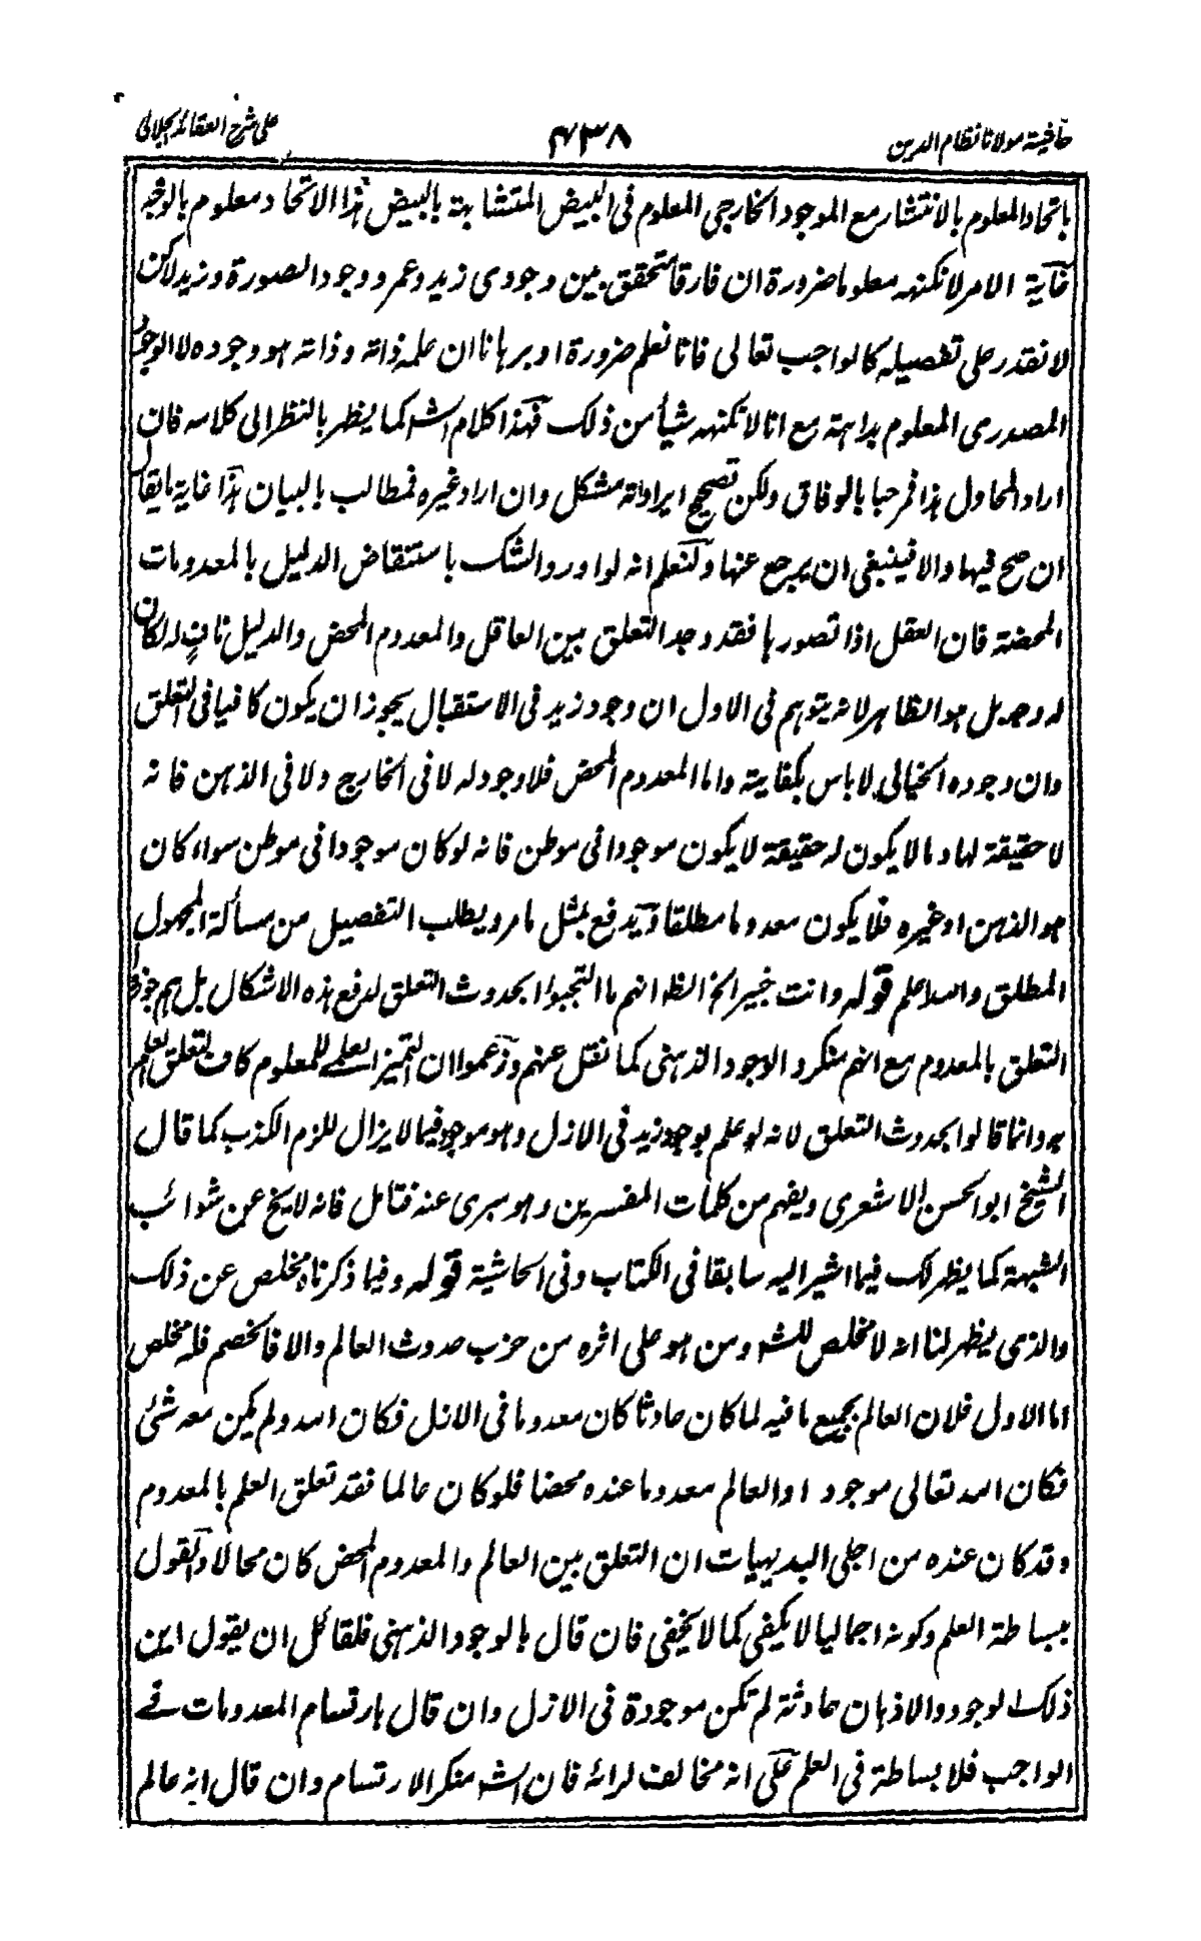 حاشية مولانا نظام الدين
۴۳۸
على شرح العقائد الجلالى
باتحاد المعلوم بالانتشار مع الموجود الخارجى المعلوم فى البيض المتشابهة بالبيض هذا الاتحاد معلوم بالوجه
غاية الامر لا نكنهه معلوما ضرورة ان فارقا متحقق بين وجودى زيد وعمرو ووجود الصورة وزيد لكن
لا نقدر على تفصيله كالواجب تعالى فانا نعلم ضرورة او برهانا ان علمه ذاته وذاته هو وجوده لا الوجود
المصدرى المعلوم بداهة مع انا لا نكنهه شيأ من ذلك فهذا كلام الشه كما يظهر بالنظر الى كلامه فان
اراد المحاول هذا فمرحبا بالوفاق ولكن تصحيح ايراداته مشكل وان اراد غيره فمطالب بالبيان هذا غاية ما يقال
ان صح فيها والا فينبغى ان يرجع عنها ولنعلم انه لو اورد الشك باستنقاض الدليل بالمعدومات
المحضة فان العقل اذا تصورها فقد وجد التعلق بين العاقل والمعدوم المحض والدليل ناف له لكان
له وجه بل هو الظاهر لانه يتوهم فى الاول ان وجود زيد فى الاستقبال يجوز ان يكون كافيا فى التعلق
وان وجوده الخيالى لا باس بكفايته واما المعدوم المحض فلا وجود له لا فى الخارج ولا فى الذهن فانه
لا حقيقة لها وما لا يكون له حقيقة لا يكون موجودا فى موطن فانه لو كان موجودا فى موطن سواء كان
هو الذهن او غيره فلا يكون معدوما مطلقا ويدفع بمثل ما مر ويطلب التفصيل من مسألة المجهول
المطلق والله اعلم قوله وانت خبير الخ الظا انهم ما التجبوا بحدوث التعلق لدفع هذه الاشكال بل هم جوزوا
التعلق بالمعدوم مع انهم منكرو الوجود الذهنى كما نقل عنهم وزعموا ان التميز العلمى للمعلوم كاف لتعلق العلم
به وانما قالوا بحدوث التعلق لانه لو علم بوجود زيد فى الازل وهو موجود فيما لا يزال للزم الكذب كما قال
الشيخ ابو الحسن الاشعرى ويفهم من كلمات المفسرين وهو مبرى عنه فتامل فانه لا يخ عن شوائب
الشبهة كما يظهر لك فيما اشير اليه سابقا فى الكتاب وفى الحاشية قوله وفيما ذكرناه مخلص عن ذلك
والذى يظهر لنا انه لا مخلص للشه ومن هو على اثره من حزب حدوث العالم والا فالخصم فله مخلص
اما الاول فلان العالم بجميع ما فيه لما كان حادثا كان معدوما فى الازل فكان الله ولم يكن معه شئ
فكان الله تعالى موجودا والعالم معدوما عنده محضا فلو كان عالما فقد تعلق العلم بالمعدوم
وقد كان عنده من اجلى البديهيات ان التعلق بين العالم والمعدوم المحض كان محالا والقول
ببساطة العلم وكونه اجماليا لا يكفى كما لا يخفى فان قال بالوجود الذهنى فلقائل ان يقول اين
ذلك الوجود والاذهان حادثة لم تكن موجودة فى الازل وان قال بارتسام المعدومات فى
الواجب فلا بساطة فى العلم على انه مخالف لرائه فان الشه منكر الارتسام وان قال انه عالم